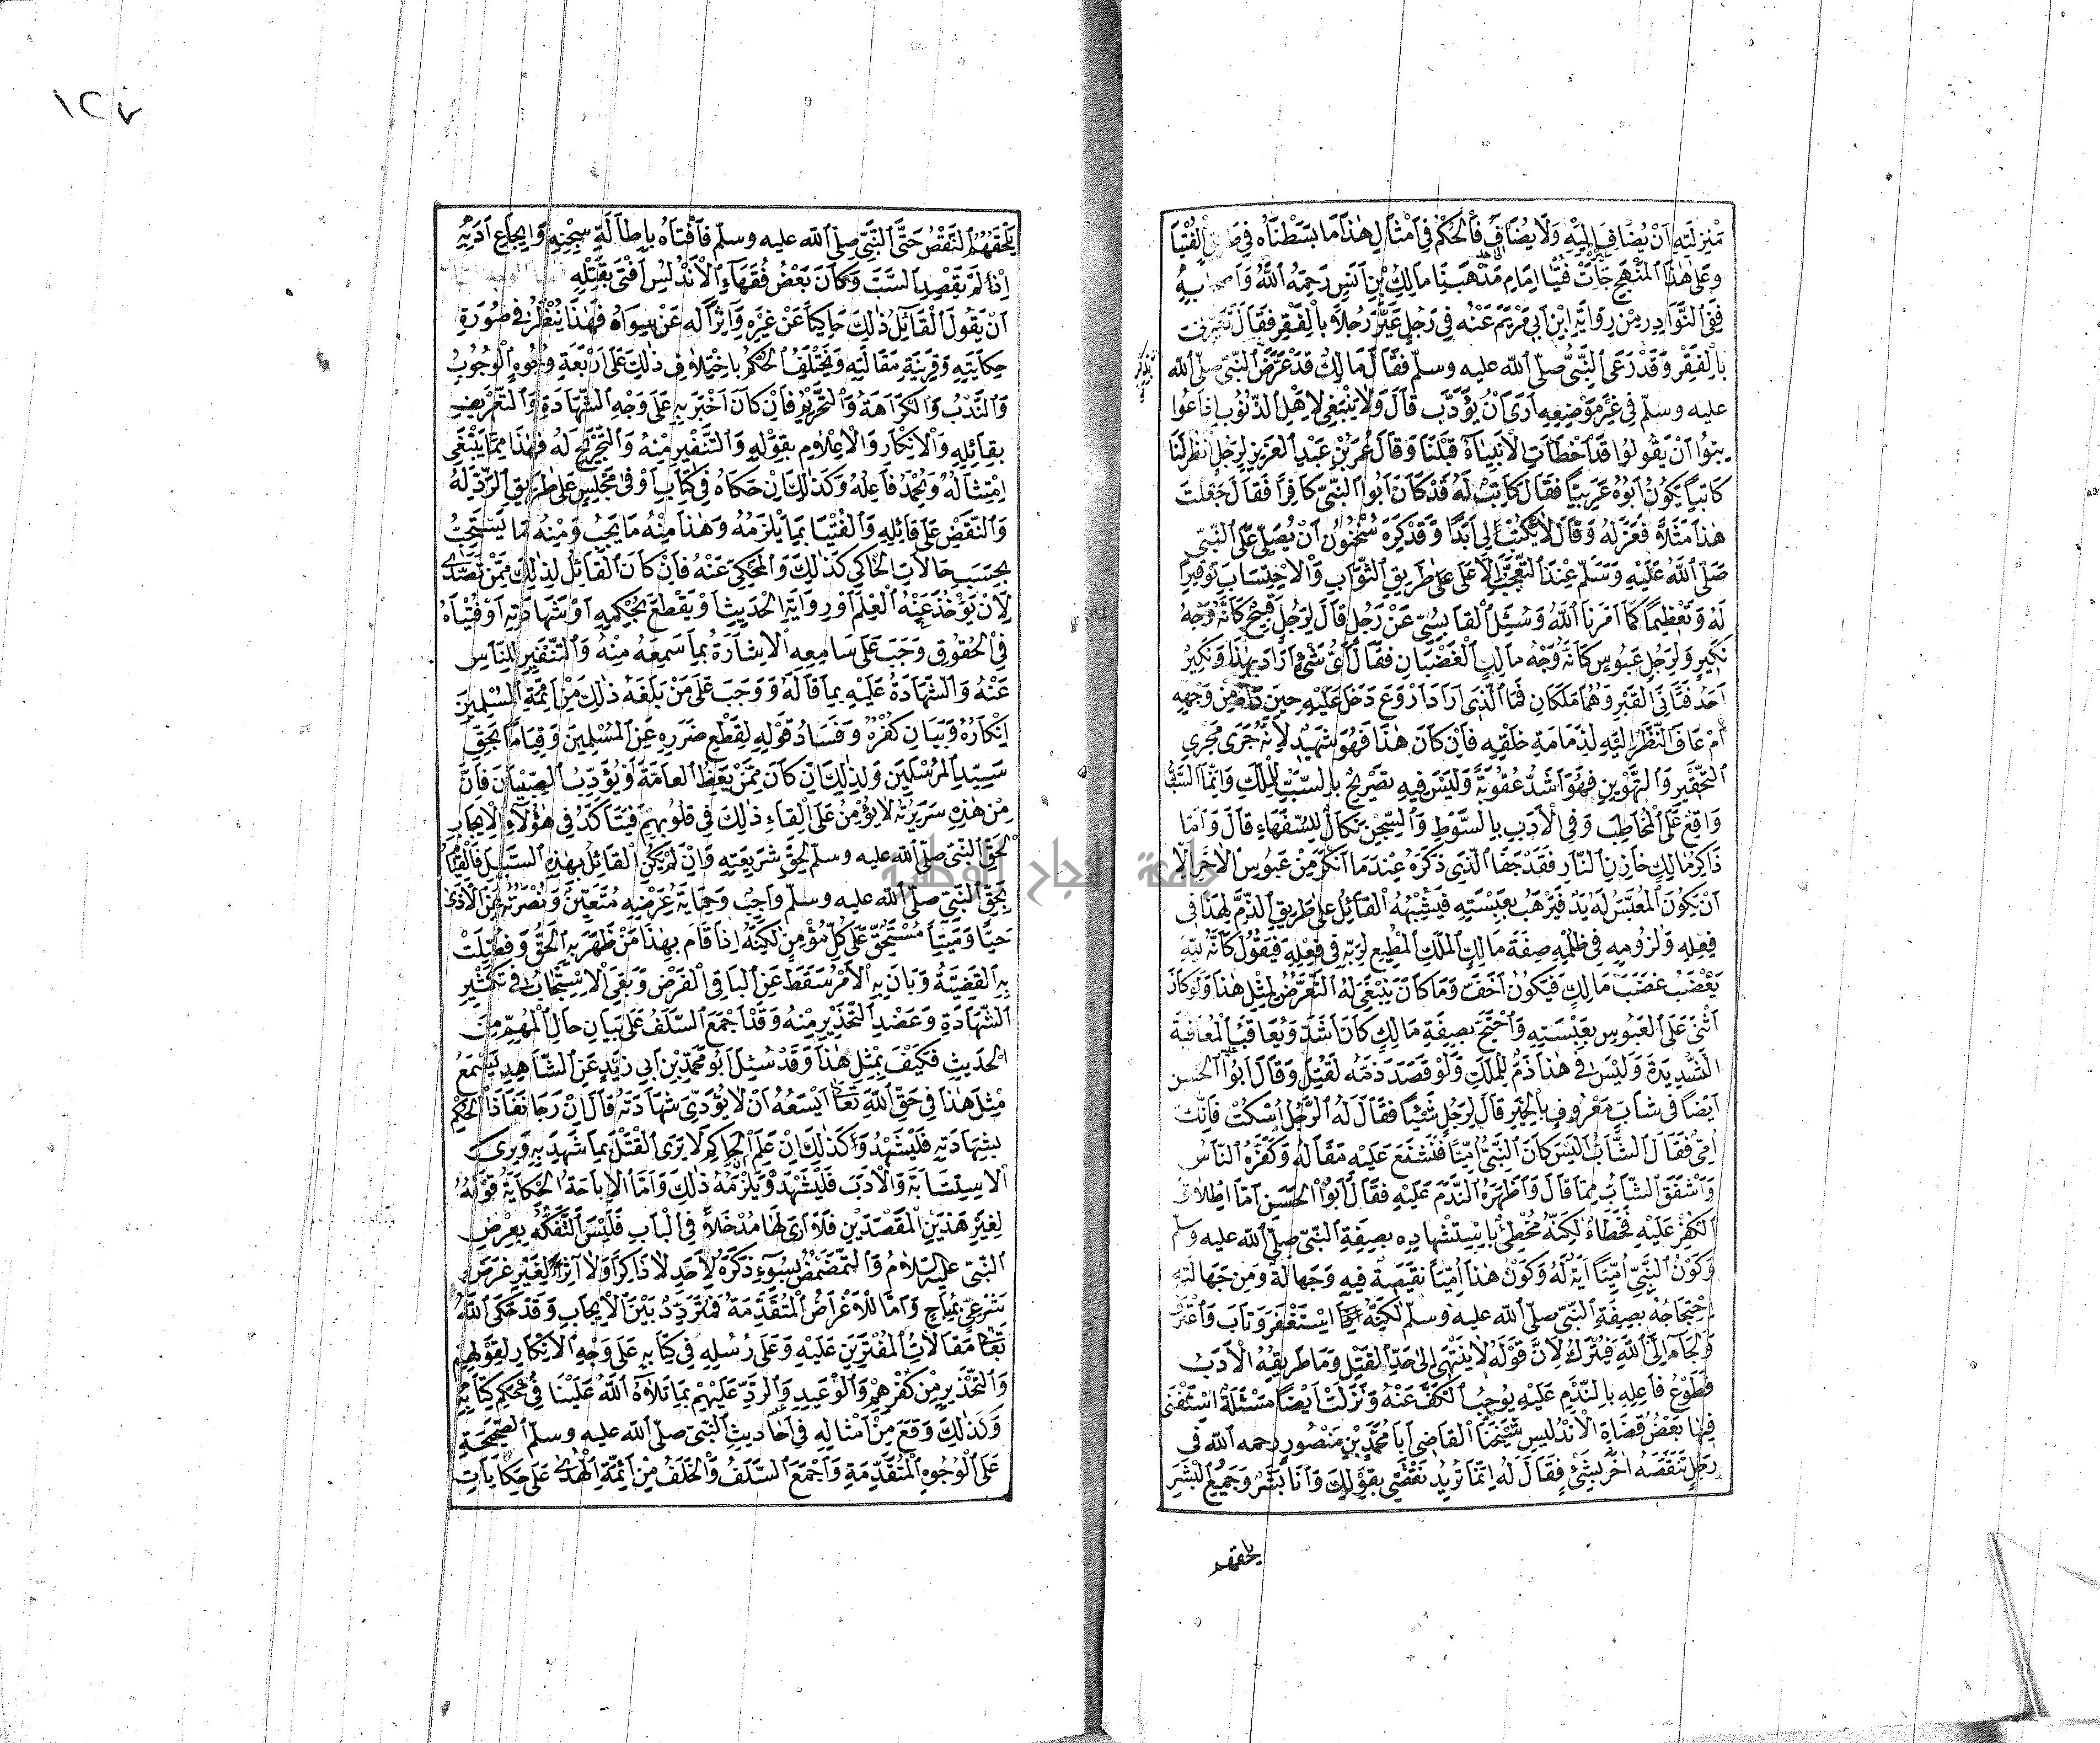 مَنْزِلَتِهِ اَنْ يُضَافَ اِلَيْهِ وَلَا يُضَافُ فَالْحُكْمُ فِي اَمْثَالِ هٰذَا مَا بَسَطْنَاهُ فِي الْفُتْيَا
وَعَلٰى هٰذَا الْمَنْهَجِ جَآءَتْ فُتْيَا اِمَامِ مَذْهَبِنَا مَالِكِ بْنِ اَنَسٍ رَحِمَهُ اللّٰهُ وَاَصْحَابِهِ
فَفِي النَّوَادِرِ مِنْ رِوَايَةِ ابْنِ اَبِي مَرْيَمَ عَنْهُ فِي رَجُلٍ عَيَّرَ رَجُلاً بِالْفَقْرِ فَقَالَ تُعَيِّرُنِي
بِالْفَقْرِ وَقَدْ رَعَى النَّبِيُّ صلّى اللّٰه عليه وسلّم فَقَالَ مَالِكٌ قَدْ عَرَّضَ النَّبِيّ صلّى اللّٰه
عليه وسلّم فِي غَيْرِ مَوْضِعِهِ اَرَى اَنْ يُؤَدَّبَ قَالَ وَلَا يَنْبَغِي لِاَهْلِ الذُّنُوبِ اِذَا عُوتِبُوا
اَنْ يَقُولُوا قَدْ اَخْطَأَتِ الْاَنْبِيَاءُ قَبْلَنَا وَقَالَ عُمَرُ بْنُ عَبْدِ الْعَزِيزِ لِرَجُلٍ انْظُرْ لَنَا
كَاتِبًا يَكُونُ اَبُوهُ عَرَبِيًّا فَقَالَ كَاتِبٌ لَهُ قَدْ كَانَ اَبُو النَّبِيِّ كَافِرًا فَقَالَ جَعَلْتَ
هٰذَا مَثَلاً فَعَزَلَهُ وَقَالَ لَا تَكْتُبْ لِي اَبَدًا وَقَدْ كَرِهَ سُحْنُونُ اَنْ يُصَلَّى عَلَى النَّبِيِّ
صَلَّى اللّٰهُ عَلَيْهِ وَسَلَّمَ عِنْدَ التَّعَجُّبِ اِلَّا عَلَى طَرِيقِ الثَّوَابِ وَالْاِحْتِسَابِ تَوْقِيرًا
لَهُ وَتَعْظِيمًا كَمَا اَمَرَنَا اللّٰهُ وَسُئِلَ الْقَابِسِيُّ عَنْ رَجُلٍ قَالَ لِرَجُلٍ قَبِيحٍ كَاَنَّهُ وَجْهُ
نَكِيرٍ وَلِرَجُلٍ عَبُوسٍ كَاَنَّهُ وَجْهُ مَالِكٍ الْغَضْبَانِ فَقَالَ اَيُّ شَيْءٍ اَرَادَ بِهٰذَا وَنَكِيرٌ
اَحَدُ فَتَّانَيِ الْقَبْرِ وَهُمَا مَلَكَانِ فَمَا الَّذِي اَرَادَ اَرَوْعٌ دَخَلَ عَلَيْهِ حِينَ رَآهُ مِنْ وَجْهِهِ
اَمْ عَافَ النَّظَرَ اِلَيْهِ لِذَمَامَةِ خَلْقِهِ فَاِنْ كَانَ هٰذَا فَهُوَ شَدِيدٌ لِاَنَّهُ جَرَى مَجْرَى
التَّحْقِيرِ وَالتَّهْوِينِ فَهُوَ اَشَدُّ عُقُوبَةً وَلَيْسَ فِيهِ تَصْرِيحٌ بِالسَّبِّ لِلْمَلَكِ وَاِنَّمَا السَّبُّ
وَاقِعٌ عَلَى الْمُخَاطَبِ وَفِي الْاَدَبِ بِالسَّوْطِ وَالسِّجْنِ نَكَالٌ لِلسُّفَهَاءِ قَالَ وَاَمَّا
ذَاكِرُ مَالِكٍ خَازِنِ النَّارِ فَقَدْ جَفَا الَّذِي ذَكَرَهُ عِنْدَ مَا اَنْكَرَ مِنْ عَبُوسِ الْاٰخَرِ اِلَّا
اَنْ يَكُونَ الْمُعَبِّسُ لَهُ يَدٌ فَيُرْهَبُ بِعَبْسَتِهِ فَيُشَبِّهُهُ الْقَائِلُ عَلَى طَرِيقِ الذَّمِّ لِهٰذَا فِي
فِعْلِهِ وَلُزُومِهِ فِي ظُلْمِهِ صِفَةَ مَالِكٍ الْمَلَكِ الْمُطِيعِ لِرَبِّهِ فِي فِعْلِهِ فَيَقُولُ كَاَنَّهُ لِلّٰهِ
يَغْضَبُ غَضَبَ مَالِكٍ فَيَكُونُ اَخَفَّ وَمَا كَانَ يَنْبَغِي لَهُ التَّعَرُّضُ لِمِثْلِ هٰذَا وَلَوْ كَانَ
اَثْنَى عَلَى الْعَبُوسِ بِعَبْسَتِهِ وَاحْتَجَّ بِصِفَةِ مَالِكٍ كَانَ اَشَدَّ وَيُعَاقَبُ الْمُعَاقَبَةَ
الشَّدِيدَةَ وَلَيْسَ فِي هٰذَا ذَمٌّ لِلْمَلَكِ وَلَوْ قَصَدَ ذَمَّهُ لَقُتِلَ وَقَالَ اَبُو الْحَسَنِ
اَيْضًا فِي شَابٍّ مَعْرُوفٍ بِالْخَيْرِ قَالَ لِرَجُلٍ شَيْئًا فَقَالَ لَهُ الرَّجُلُ اسْكُتْ فَاِنَّكَ
اُمِّيٌّ فَقَالَ الشَّابُّ اَلَيْسَ كَانَ النَّبِيُّ اُمِّيًّا فَشُنِّعَ عَلَيْهِ مَقَالُهُ وَكَفَّرَهُ النَّاسُ
وَاَشْفَقَ الشَّابُّ مِمَّا قَالَ وَاَظْهَرَ النَّدَمَ عَلَيْهِ فَقَالَ اَبُو الْحَسَنِ اَمَّا اِطْلَاقُ
الْكُفْرِ عَلَيْهِ فَخَطَاءٌ لٰكِنَّهُ مُخْطِئٌ بِاسْتِشْهَادِهِ بِصِفَةِ النَّبِيّ صلّى اللّٰه عليه وسلّم
وَكَوْنُ النَّبِيِّ اُمِّيًّا اٰيَةٌ لَهُ وَكَوْنُ هٰذَا اُمِّيًّا نَقِيصَةٌ فِيهِ وَجَهَالَةٌ وَمِنْ جَهَالَتِهِ
اِحْتِجَاجُهُ بِصِفَةِ النَّبِيّ صلّى اللّٰه عليه وسلّم لٰكِنَّهُ اِذَا اسْتَغْفَرَ وَتَابَ وَاعْتَرَفَ
وَلَجَأَ اِلَى اللّٰهِ فَيُتْرَكُ لِاَنَّ قَوْلَهُ لَا يَنْتَهِي اِلٰى حَدِّ الْقَتْلِ وَمَا طَرِيقُهُ الْاَدَبُ
فَطَوْعُ فَاعِلِهِ بِالنَّدَمِ عَلَيْهِ يُوجِبُ الْكَفَّ عَنْهُ وَنَزَلَتْ اَيْضًا مَسْئَلَةٌ اسْتَفْتَى
فِيهَا بَعْضُ قُضَاةِ الْاَنْدَلُسِ شَيْخَنَا الْقَاضِي اَبَا مُحَمَّدِ بْنِ مَنْصُورٍ رحمه اللّٰه فِي
رَجُلٍ تَنَقَّصَهُ اٰخَرُ بِشَيْءٍ فَقَالَ لَهُ اِنَّمَا تُرِيدُ نَقْصِي بِقَوْلِكَ وَاَنَا بَشَرٌ وَجَمِيعُ الْبَشَرِ
يلحقهم
١٢٧
يَلْحَقُهُمُ النَّقْصُ حَتَّى النَّبِيّ صلّى اللّٰه عليه وسلّم فَاَفْتَاهُ بِاِطَالَةِ سِجْنِهِ وَاِيجَاعِ اَدَبِهِ
اِذْ لَمْ يَقْصِدِ السَّبَّ وَكَانَ بَعْضُ فُقَهَاءِ الْاَنْدَلُسِ اَفْتَى بِقَتْلِهِ
اَنْ يَقُولَ الْقَائِلُ ذٰلِكَ حَاكِيًا عَنْ غَيْرِهِ وَاٰثِرًا لَهُ عَنْ سِوَاهُ فَهٰذَا يُنْظَرُ فِي صُورَةِ
حِكَايَتِهِ وَقَرِينَةِ مَقَالَتِهِ وَيَخْتَلِفُ الْحُكْمُ بِاخْتِلَافِ ذٰلِكَ عَلَى اَرْبَعَةِ وُجُوهٍ الْوُجُوبُ
وَالنَّدْبُ وَالْكَرَاهَةُ وَالتَّحْرِيمُ فَاِنْ كَانَ اَخْبَرَ بِهِ عَلَى وَجْهِ الشَّهَادَةِ وَالتَّعْرِيضِ
بِقَائِلِهِ وَالْاِنْكَارِ وَالْاِعْلَامِ بِقَوْلِهِ وَالتَّنْفِيرِ مِنْهُ وَالتَّجْرِيحِ لَهُ فَهٰذَا مِمَّا يَنْبَغِي
امْتِثَالُهُ وَيُحْمَدُ فَاعِلُهُ وَكَذٰلِكَ اِنْ حَكَاهُ فِي كِتَابٍ اَوْ فِي مَجْلِسٍ عَلَى طَرِيقِ الرَّدِّ لَهُ
وَالنَّقْضِ عَلَى قَائِلِهِ وَالْفُتْيَا بِمَا يَلْزَمُهُ وَهٰذَا مِنْهُ مَا يَجِبُ وَمِنْهُ مَا يُسْتَحَبُّ
بِحَسَبِ حَالَاتِ الْحَاكِي كَذٰلِكَ وَالْمَحْكِيِّ عَنْهُ فَاِنْ كَانَ الْقَائِلُ لِذٰلِكَ مِمَّنْ تَصَدَّى
لِاَنْ يُؤْخَذَ عَنْهُ الْعِلْمُ اَوْ رِوَايَةُ الْحَدِيثِ اَوْ يُقْطَعَ بِحُكْمِهِ اَوْ شَهَادَتِهِ اَوْ فُتْيَاهُ
فِي الْحُقُوقِ وَجَبَ عَلَى سَامِعِهِ الْاِشَارَةُ بِمَا سَمِعَهُ مِنْهُ وَالتَّنْفِيرُ لِلنَّاسِ
عَنْهُ وَالشَّهَادَةُ عَلَيْهِ بِمَا قَالَهُ وَوَجَبَ عَلَى مَنْ بَلَغَهُ ذٰلِكَ مِنْ اَئِمَّةِ الْمُسْلِمِينَ
اِنْكَارُهُ وَبَيَانُ كُفْرِهِ وَفَسَادُ قَوْلِهِ لِقَطْعِ ضَرَرِهِ عَنِ الْمُسْلِمِينَ وَقِيَامًا بِحَقِّ
سَيِّدِ الْمُرْسَلِينَ وَلِذٰلِكَ اِنْ كَانَ مِمَّنْ يَعِظُ الْعَامَّةَ اَوْ يُؤَدِّبُ الصِّبْيَانَ فَاِنَّ
مَنْ هٰذِهِ سَرِيرَتُهُ لَا يُؤْمَنُ عَلَى اِلْقَاءِ ذٰلِكَ فِي قُلُوبِهِمْ فَيَتَاَكَّدُ فِي هٰؤُلَاءِ الْاِيجَابُ
لِحَقِّ النَّبِيّ صلّى اللّٰه عليه وسلّم لِحَقِّ شَرِيعَتِهِ وَاِنْ لَمْ يَكُنِ الْقَائِلُ بِهٰذِهِ السَّبِيلِ فَالْقِيَامُ
بِحَقِّ النَّبِيّ صلّى اللّٰه عليه وسلّم وَاجِبٌ وَحِمَايَةُ عِرْضِهِ مُتَعَيِّنٌ وَنُصْرَتُهُ عَنِ الْاَذَى
حَيًّا وَمَيِّتًا مُسْتَحَقٌّ عَلَى كُلِّ مُؤْمِنٍ لٰكِنَّهُ اِذَا قَامَ بِهٰذَا مَنْ ظَهَرَ بِهِ الْحَقُّ وَفُصِّلَتْ
بِهِ الْقَضِيَّةُ وَبَانَ بِهِ الْاَمْرُ سَقَطَ عَنِ الْبَاقِي الْفَرْضُ وَبَقِيَ الْاِسْتِحْبَابُ فِي تَكْثِيرِ
الشَّهَادَةِ وَعَضْدِ التَّحْذِيرِ مِنْهُ وَقَدْ اَجْمَعَ السَّلَفُ عَلَى بَيَانِ حَالِ الْمُتَّهَمِ فِي
الْحَدِيثِ فَكَيْفَ بِمِثْلِ هٰذَا وَقَدْ سُئِلَ اَبُو مُحَمَّدِ بْنُ اَبِي زَيْدٍ عَنِ الشَّاهِدِ يَسْمَعُ
مِثْلَ هٰذَا فِي حَقِّ اللّٰهِ تَعَالَى اَيَسَعُهُ اَنْ لَا يُؤَدِّيَ شَهَادَتَهُ قَالَ اِنْ رَجَا نَفَاذَ الْحُكْمِ
بِشَهَادَتِهِ فَلْيَشْهَدْ وَكَذٰلِكَ اِنْ عَلِمَ الْحَاكِمَ لَا يَرَى الْقَتْلَ بِمَا شَهِدَ بِهِ وَيَرَى
الْاِسْتِتَابَةَ وَالْاَدَبَ فَلْيَشْهَدْ وَيَلْزَمُهُ ذٰلِكَ وَاَمَّا الْاِبَاحَةُ لِحِكَايَةِ قَوْلِهِ
لِغَيْرِ هٰذَيْنِ الْمَقْصَدَيْنِ فَلَا اَرَى لَهَا مُدْخَلاً فِي الْبَابِ فَلَيْسَ التَّفَكُّهُ بِعِرْضِ
النَّبِيّ عليه السّلام وَالتَّمَضْمُضُ بِسُوءِ ذِكْرِهِ لِاَحَدٍ لَا ذَاكِرًا وَلَا اٰثِرًا لِغَيْرِ غَرَضٍ
شَرْعِيٍّ بِمُبَاحٍ وَاَمَّا لِلْاَغْرَاضِ الْمُتَقَدِّمَةِ فَمُتَرَدِّدٌ بَيْنَ الْاِيجَابِ وَقَدْ حَكَى اللّٰهُ
تَعَالَى مَقَالَاتِ الْمُفْتَرِينَ عَلَيْهِ وَعَلَى رُسُلِهِ فِي كِتَابِهِ عَلَى وَجْهِ الْاِنْكَارِ لِقَوْلِهِمْ
وَالتَّحْذِيرِ مِنْ كُفْرِهِمْ وَالْوَعِيدِ وَالرَّدِّ عَلَيْهِمْ بِمَا تَلَاهُ اللّٰهُ عَلَيْنَا فِي مُحْكَمِ كِتَابِهِ
وَكَذٰلِكَ وَقَعَ مِنْ اَمْثَالِهِ فِي اَحَادِيثِ النَّبِيّ صلّى اللّٰه عليه وسلّم الصَّحِيحَةِ
عَلَى الْوُجُوهِ الْمُتَقَدِّمَةِ وَاَجْمَعَ السَّلَفُ وَالْخَلَفُ مِنْ اَئِمَّةِ الْهُدَى عَلَى حِكَايَاتِ
جامعة النجاح الوطنية